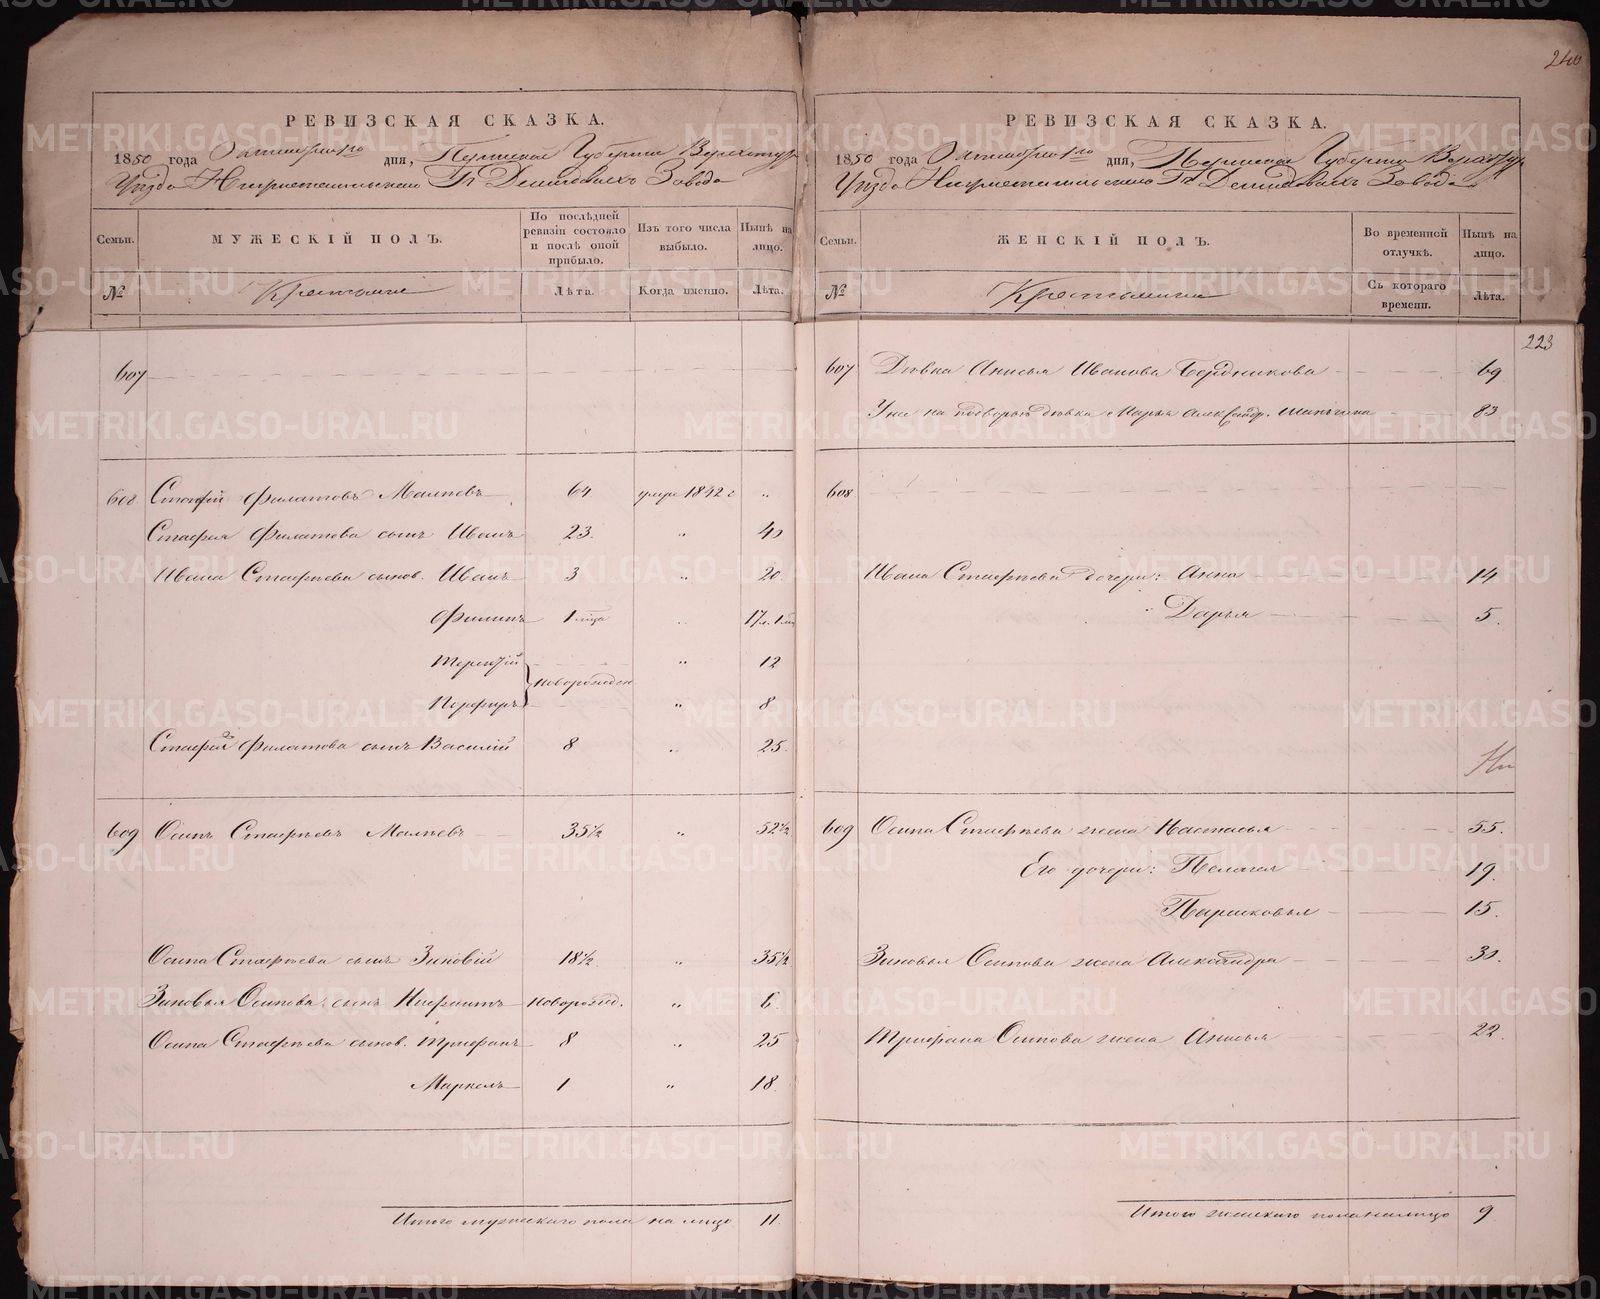 240
РЕВИЗСКАЯ СКАЗКА.
1850 года Октября 1го дня, Пермской Губернии Верхотур.
Уѣзда Нижнетагильскаго Гг. Демидовыхъ Завода
Семьи. №
МУЖЕСКІЙ ПОЛЪ.
Крестьяне
По послѣдней ревизіи состояло и послѣ оной прибыло.
Лѣта.
Изъ того числа выбыло.
Когда именно.
Нынѣ на лицо.
Лѣта.
607
608 Стафій Филатовъ Малѣевъ 64 умре 1842 г „
Стафія Филатова сынъ Иванъ 23. „ 40
Ивана Стафѣева сынов. Иванъ 3 „ 20.
Филипъ 1 мца „ 17 л. 1 м.
Терентій „ 12
новорожден
Порфиръ „ 8
Стафія Филатова сынъ Василій 8 „ 25.
609 Осипъ Стафѣевъ Малѣевъ 35½ „ 52½
Осипа Стафѣева сынъ Зиновій 18½ „ 35½
Зиновья Осипова сынъ Никфитъ новорожд. „ 6.
Осипа Стафѣева сынов. Трифанъ 8 „ 25
Маркелъ 1 „ 18.
Итого мужескаго пола на лицо 11.
РЕВИЗСКАЯ СКАЗКА.
1850 года Октября 1го дня, Пермской Губернии Верхотур.
Уѣзда Нижнетагильскаго Гг. Демидовыхъ Завода
Семьи. №
ЖЕНСКІЙ ПОЛЪ.
Крестьянки
Во временной отлучкѣ.
Съ котораго времени.
Нынѣ на лицо.
Лѣта.
223
607 Дѣвка Анисья Иванова Бердникова 69
У нее на подворьѣ дѣвка Марья Александр. Шаньгина 83
608
Ивана Стафѣева дочери: Анна 14
Дарья 5.
609 Осипа Стафѣева жена Настасья 55.
Его дочери: Пелагея 19.
Парасковья 15.
Зиновья Осипова жена Александра 30.
Трифана Осипова жена Анисья 22.
Итого женскаго пола налицо 9
METRIKI.GASO-URAL.RU